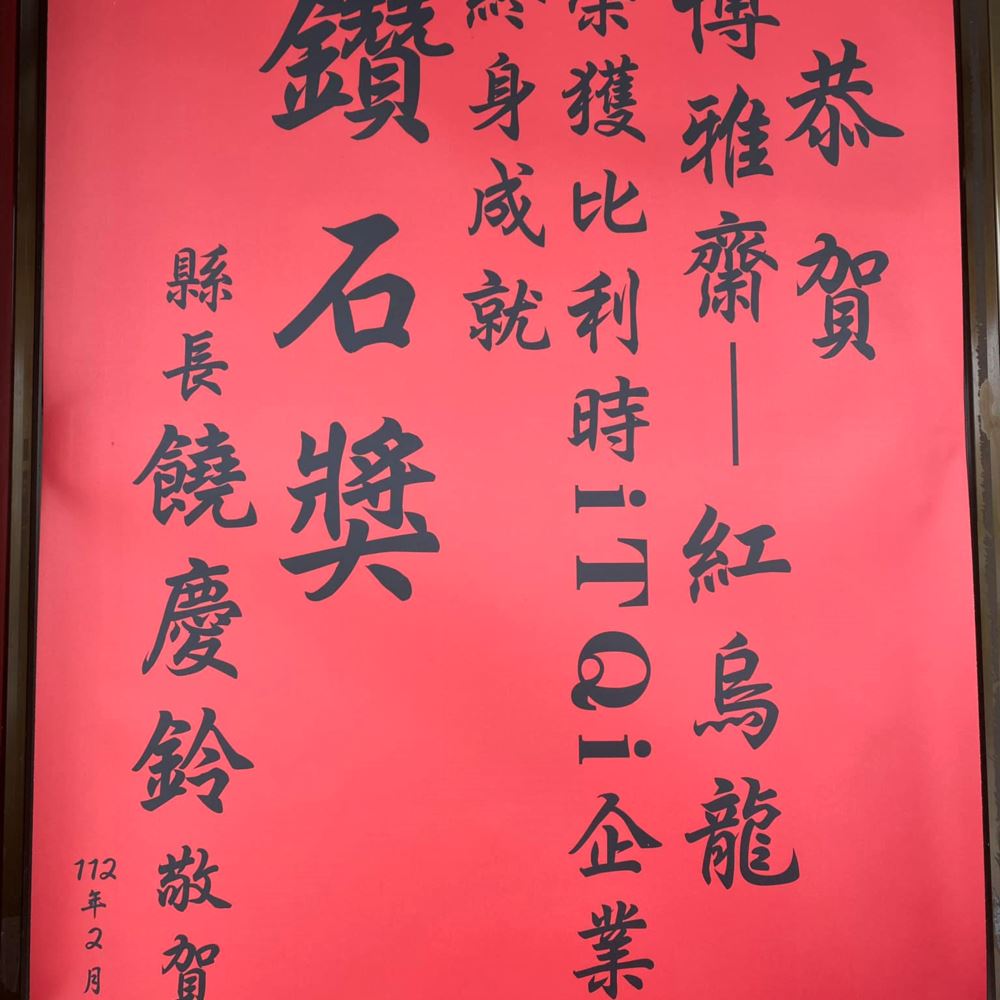 恭賀
博雅齋—紅烏龍
榮獲比利時iTQi企業
終身成就
鑽石獎
縣長饒慶鈴敬賀
112年2月